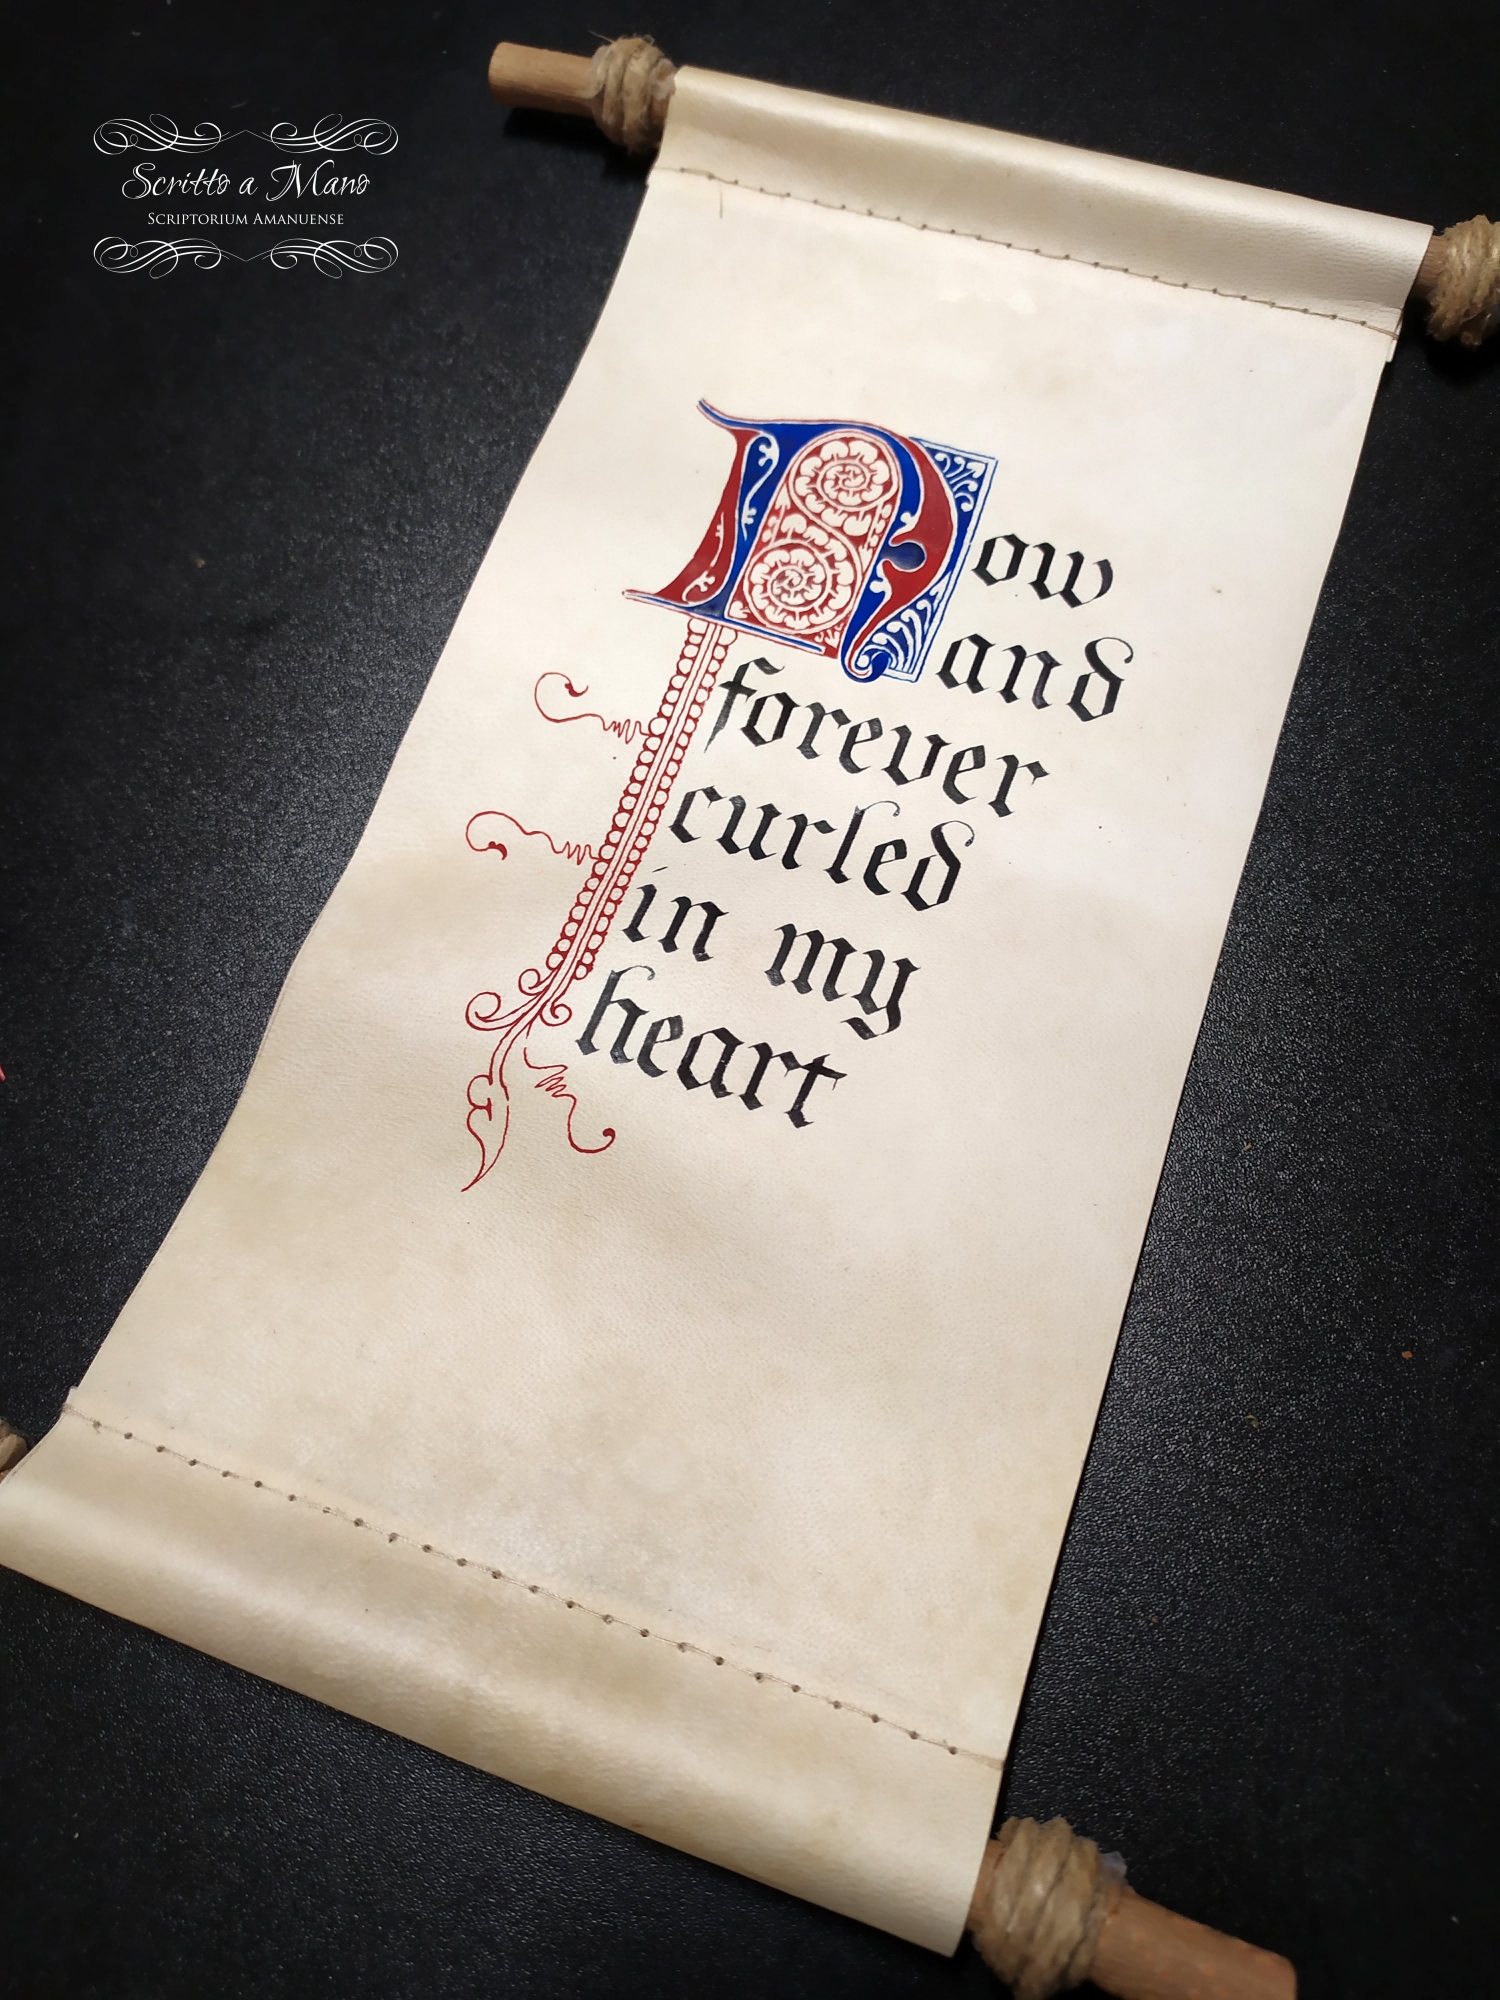 Scritto a Mano
Scriptorium Amanuense
Now
and
forever
curled
in my
heart